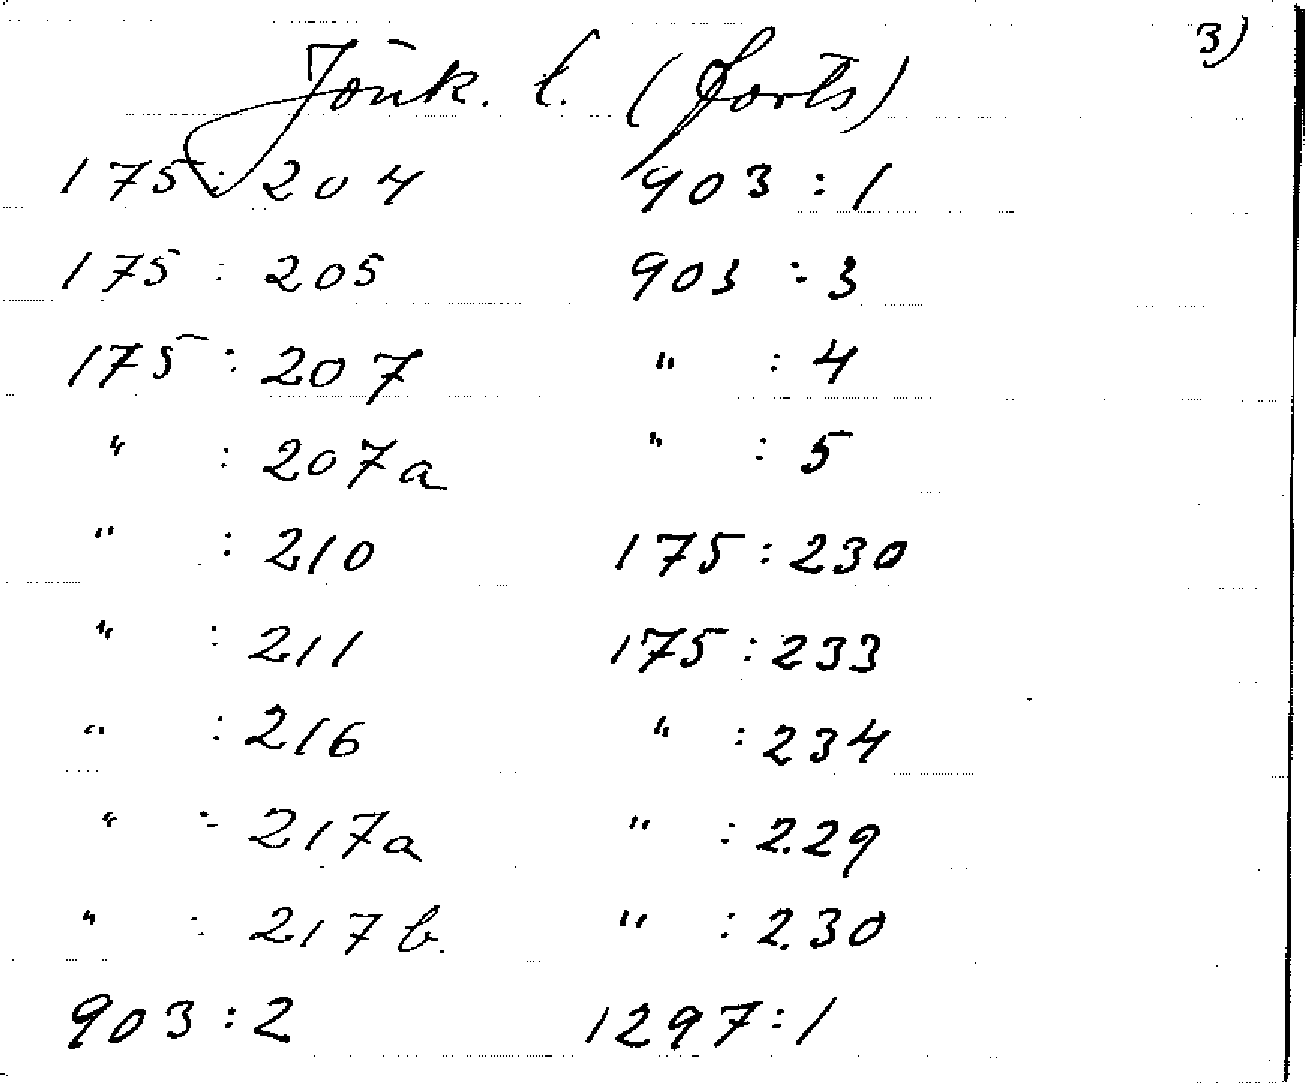 3)
Jönk. l. (forts)
175 : 204
175 : 205
175 : 207
" : 207a
" : 210
" : 211
" : 216
" : 217a
" : 217b.
903 : 2
903 : 1
903 : 3
" : 4
" : 5
175 : 230
175 : 233
" : 234
" : 229
" : 230
1297 : 1